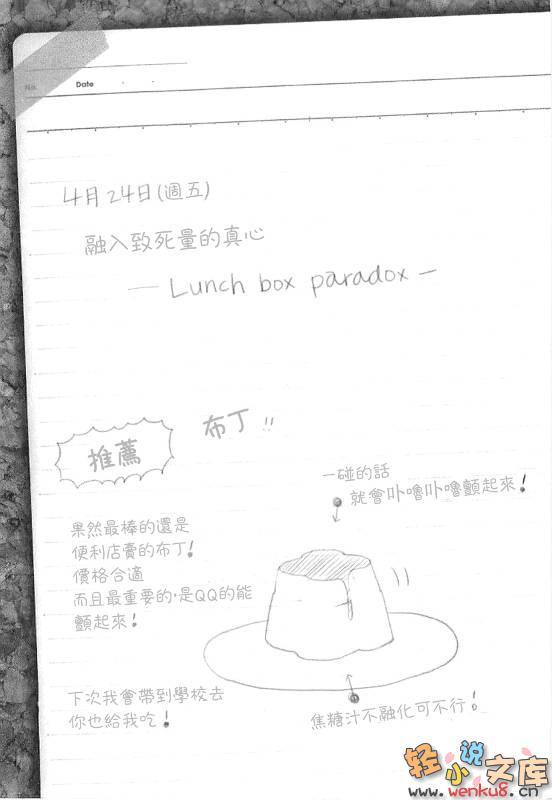 No.
Date
4月24日(週五)
融入致死量的真心
— Lunch box paradox —
推薦
布丁!!
一碰的話
就會卟嚕卟嚕顫起來!
果然最棒的還是
便利店賣的布丁!
價格合適
而且最重要的,是QQ的能
顫起來!
下次我會帶到學校去
你也給我吃!
焦糖汁不融化可不行!
轻小说文库
www.wenku8.cn